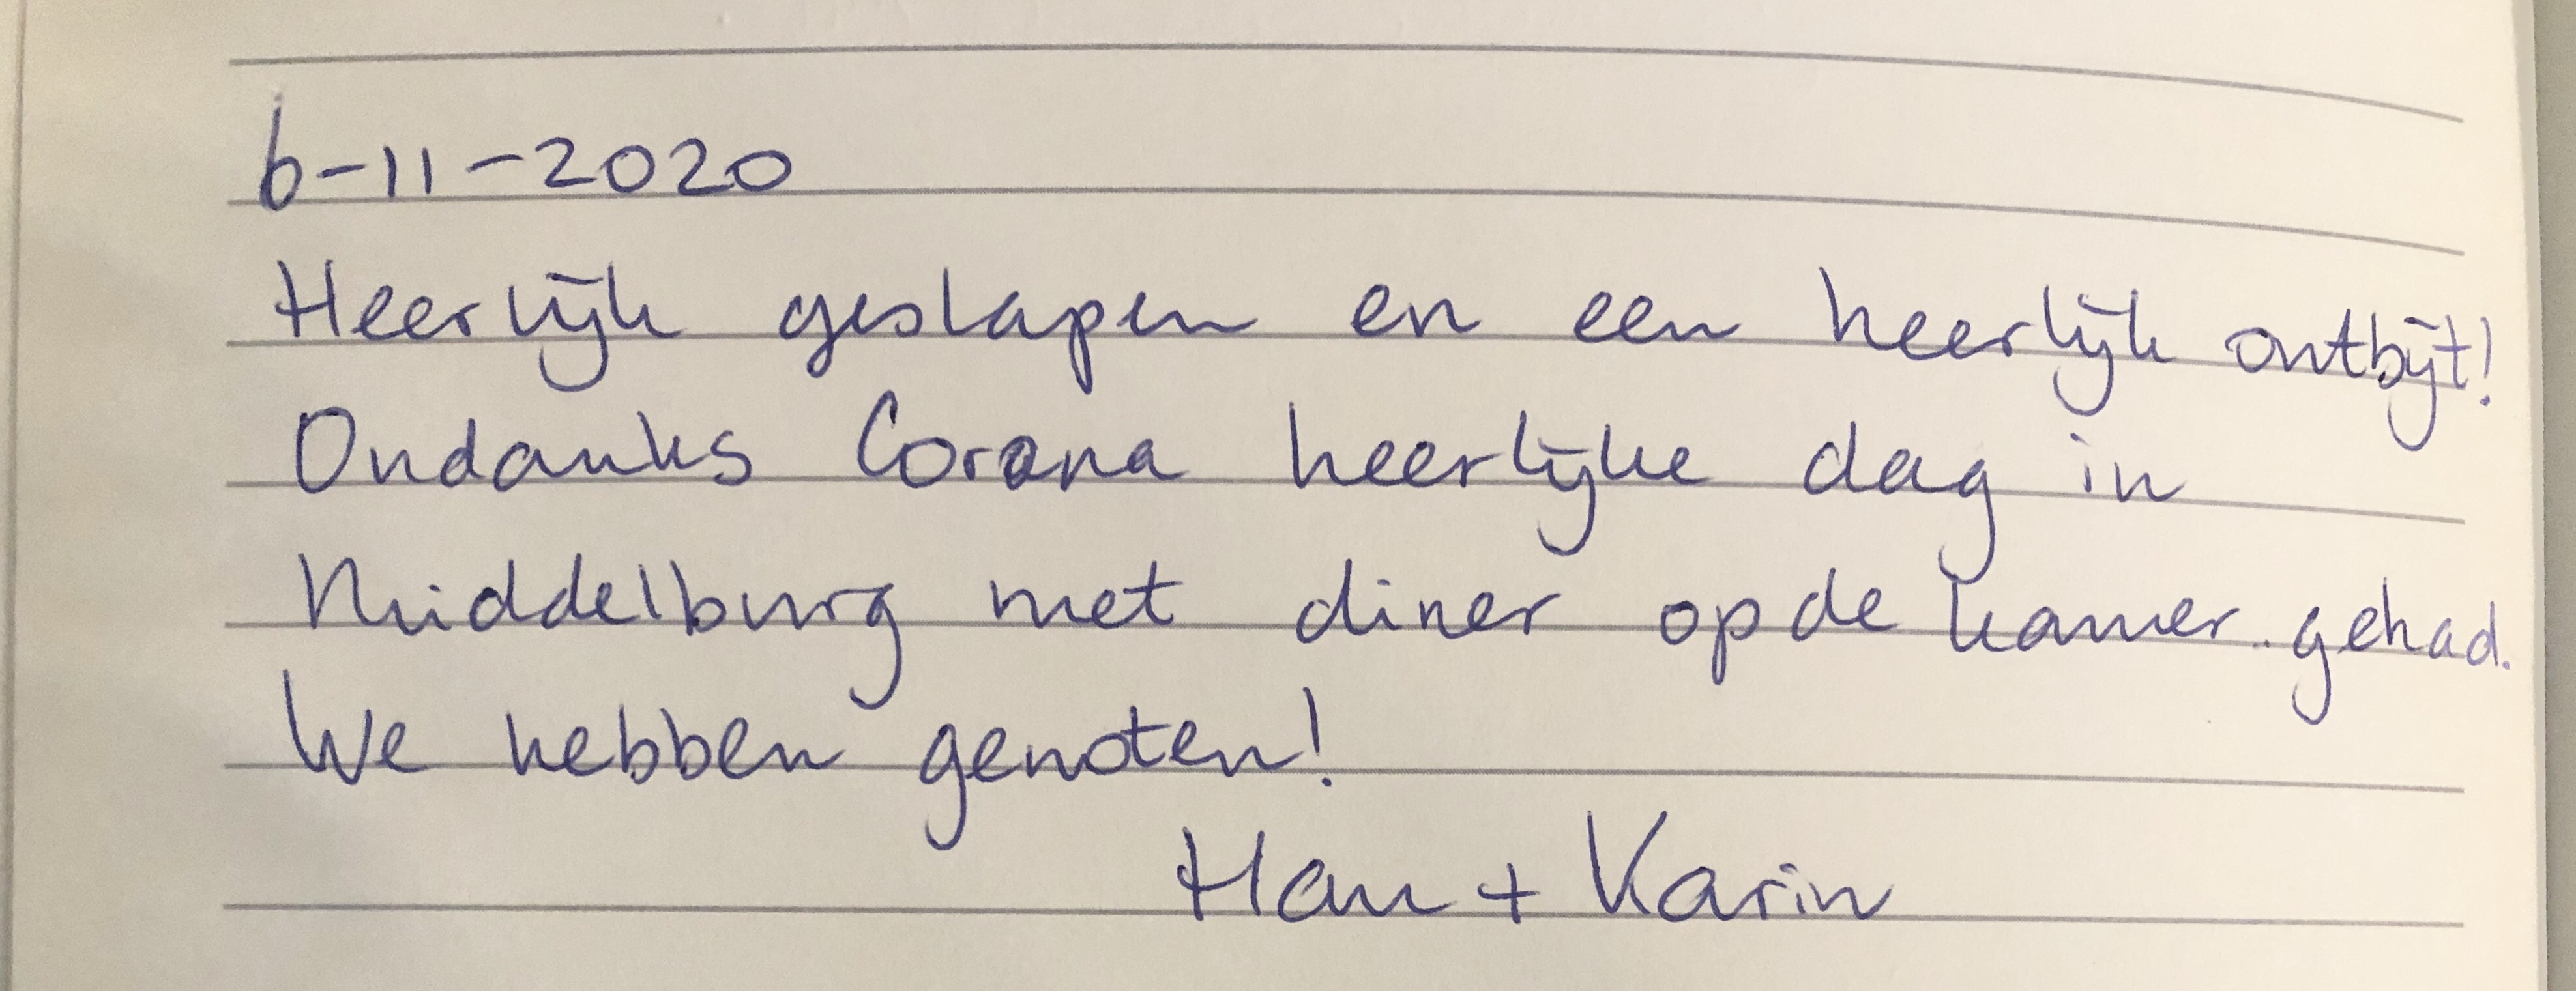 6-11-2020
Heerlijk geslapen en een heerlijk ontbijt!
Ondanks Corona heerlijke dag in
Middelburg met diner op de kamer gehad.
We hebben genoten!
Han + Karin